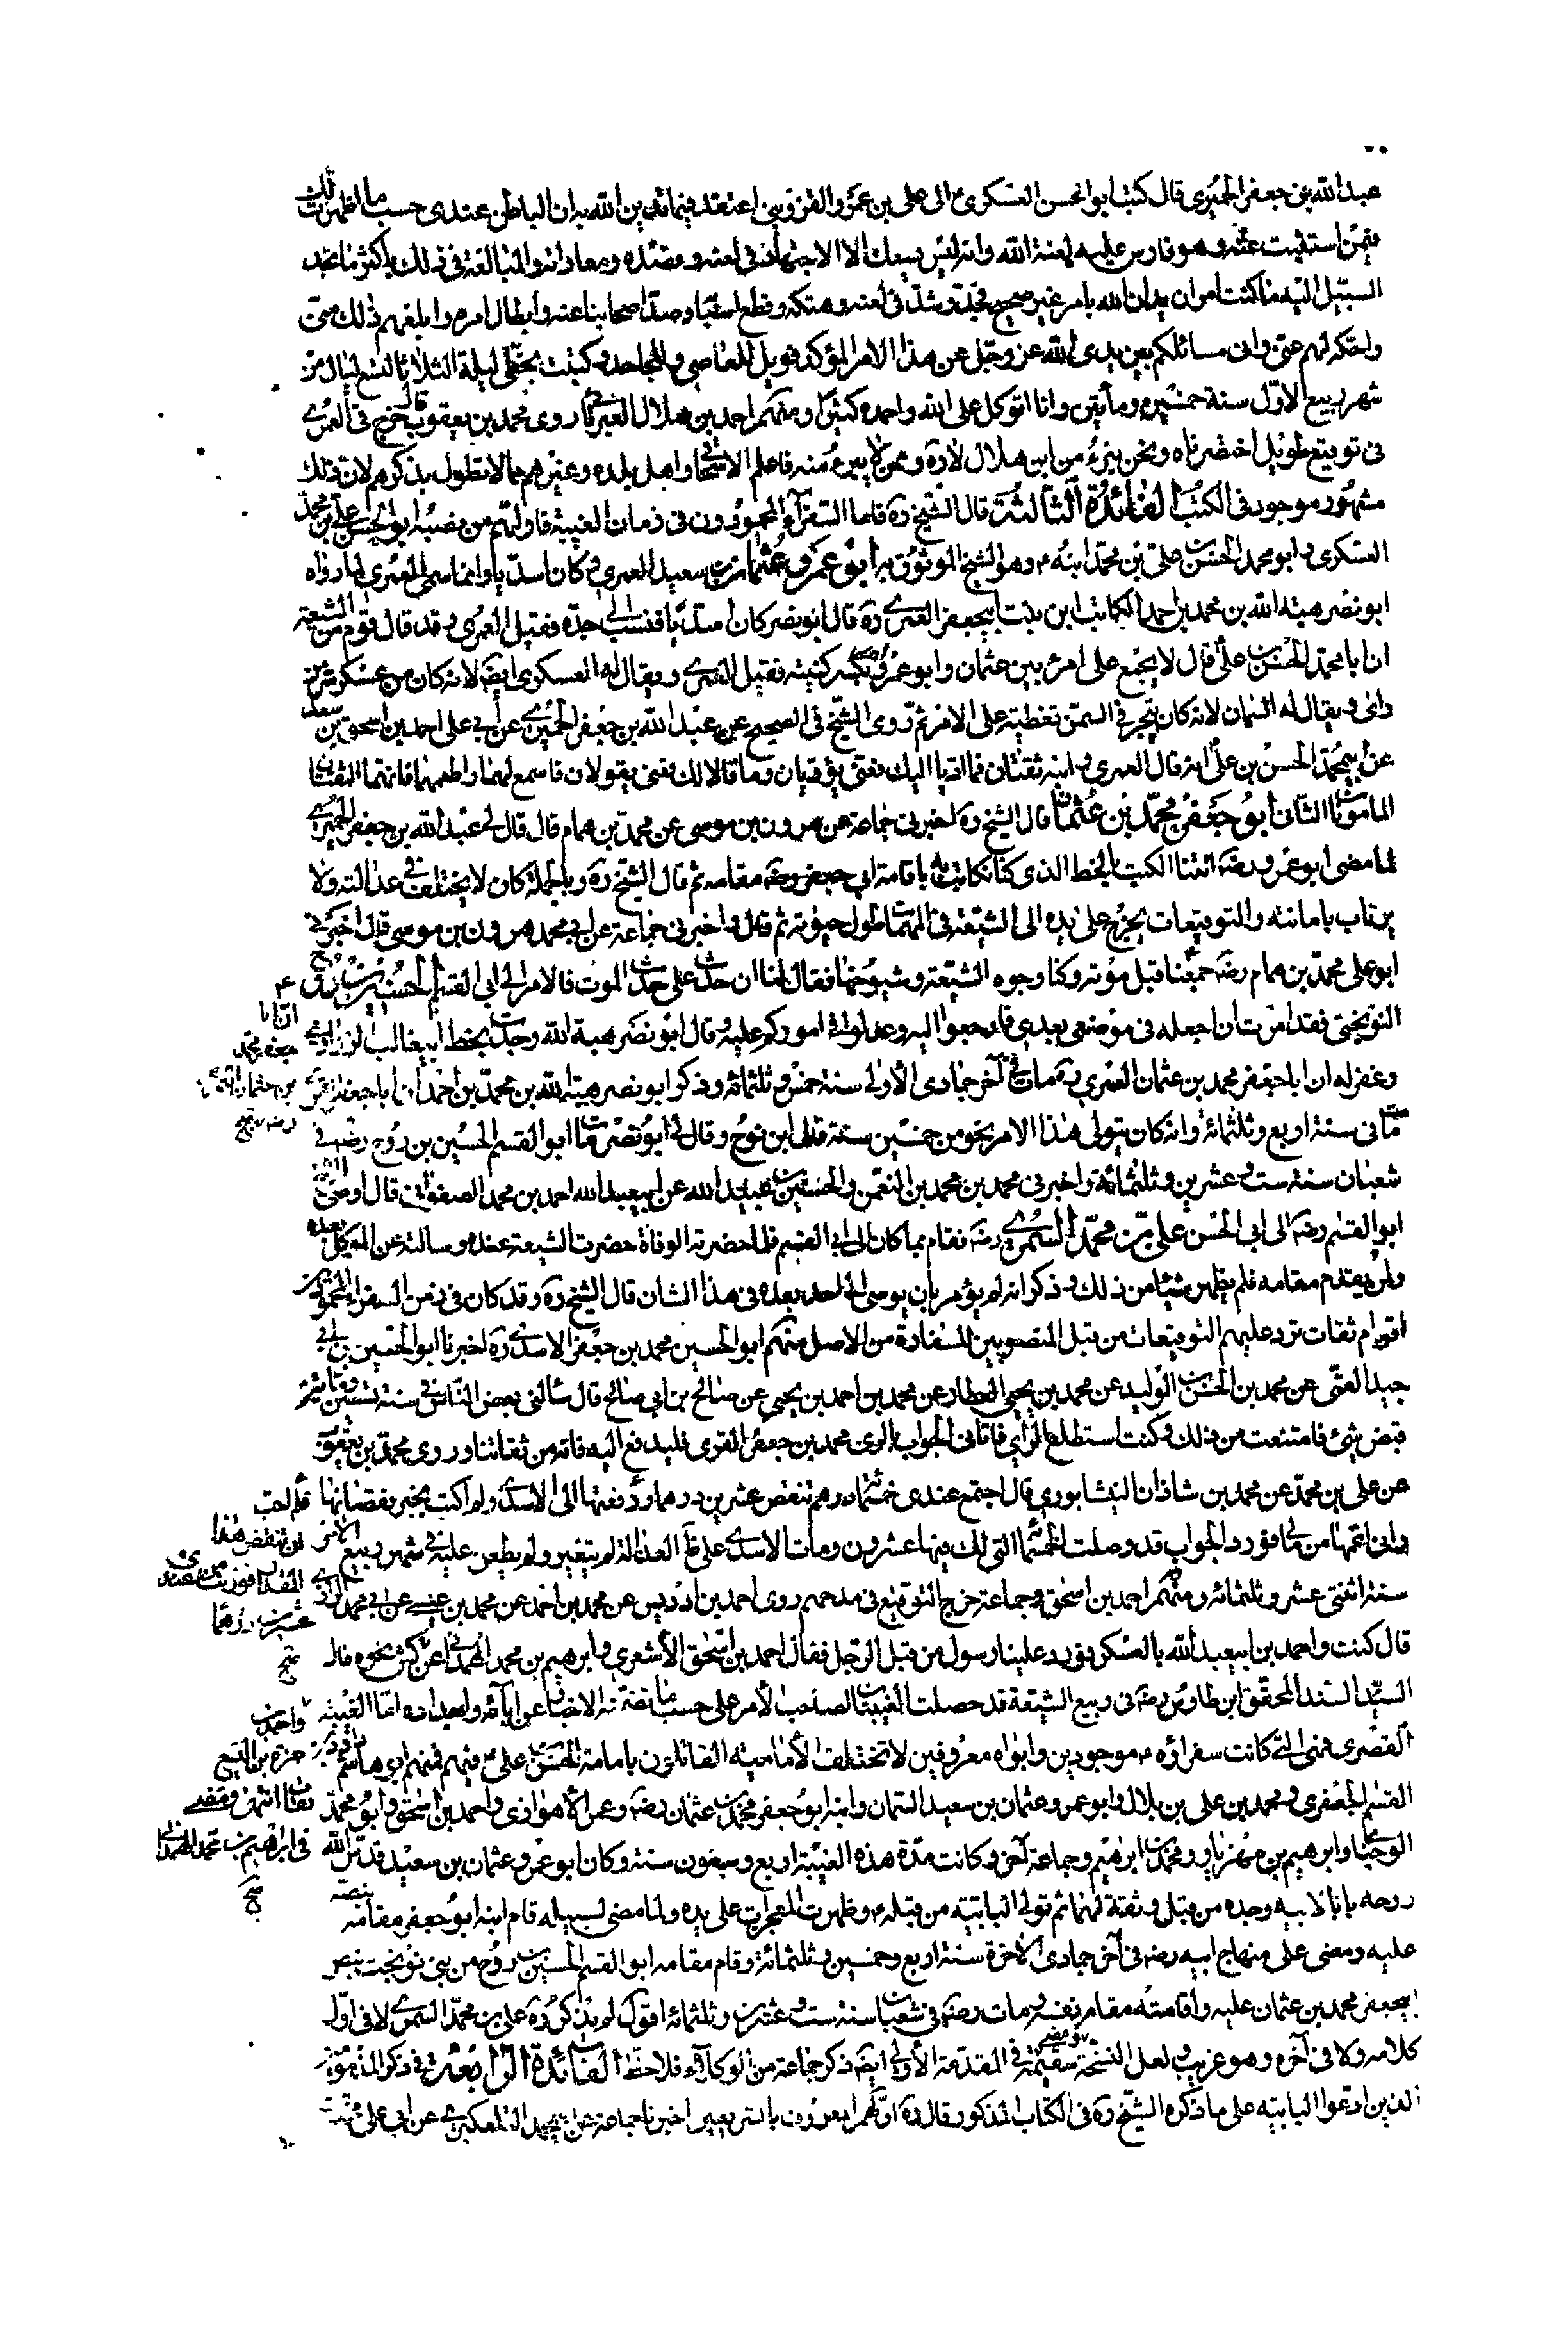 عبد الله بن جعفر الحميرى قال كتب ابو الحسن العسكرى ع الى على بن عمرو القزوينى اعتقد فيما تدين الله به ان الباطن عندى حسب ما اظهرت لك
فيمن استنبت عنه و هو فارس عليه لعنة الله و انه ليس يسعك الا الاجتهاد فى لعنه و قصده و معاداته و المبالغة فى ذلك باكثر ما تجد
السبيل اليه ما كنت امر ان يدان الله بامر غير صحيح فجد و شد فى لعنه و هتكه و قطع اسبابه و صد اصحابنا عنه و ابطال امره و ابلغهم ذلك منى
و احكه لهم عنى و انى مسائلكم بين يدى الله عز و جل عن هذا الامر المؤكد فويل للعاصى و للجاحد و كتبت بخطى ليلة الثلاثا لتسع ليال من
شهر ربيع الاول سنة خمسين و مأتين و انا اتوكل على الله و احمده كثيرا و منهم احمد بن هلال العبرتائى روى محمد بن يعقوب قال خرج فى العمرى
فى توقيع طويل اختصرناه و نحن نبرء من ابن هلال لا ره و ممن لا يبرء منه فاعلم الاسحاقى و اهل بلده و غيرهم مما لا نطول بذكرهم لان ذلك
مشهور موجود فى الكتب الفائدة الثالثة قال الشيخ ره فاما السفرآء المحمودون فى زمان الغيبة فاولهم من نصبه ابو الحسن على بن محمد
العسكرى و ابو محمد الحسن بن على بن محمد ابنه ع و هو الشيخ الموثوق به ابو عمرو عثمان بن سعيد العمرى و كان اسديا و انما سمى العمرى لما رواه
ابو نصر هبة الله بن محمد بن احمد الكاتب ابن بنت ابيجعفر العمرى ره قال ابو نصر كان اسديا فنسب الى جده فقيل العمرى و قد قال قوم من الشيعة
ان ابا محمد الحسن بن على قال لا يجمع على امرئ بين عثمان و ابو عمرو و امر بكسر كنيته فقيل العمرى و يقال له العسكرى ايضا لانه كان من عسكر سر من
راى و يقال له السمان لانه كان يتجر فى السمن تغطية على الامر ثم روى الشيخ فى الصحيح عن عبد الله بن جعفر الحميرى عن ابى على احمد بن اسحق بن سعد
عن ابيمحمد الحسن بن على انه قال العمرى و ابنه ثقتان فما اديا اليك فعنى يؤديان و ما قالا لك فعنى يقولان فاسمع لهما و اطعهما فانهما الثقتان
المامونان الثانى ابو جعفر محمد بن عثمان قال الشيخ ره اخبرنى جماعة عن هرون بن موسى عن محمد بن همام قال قال لى عبد الله بن جعفر الحميرى
لما مضى ابو عمرو رضه اتتنا الكتب بالخط الذى كنا نكاتب به باقامة ابى جعفر رضه مقامه ثم قال الشيخ ره و بالجملة كان لا يختلف فى عدالته و لا
يرتاب بامانته و التوقيعات يخرج على يده الى الشيعة فى المهمات طول حيوته ثم قال و اخبرنى جماعة عن ابى محمد هرون بن موسى قال اخبرنى
ابو على محمد بن همام رضه جمعنا قبل موته و كنا وجوه الشيعة و شيوخها فقال لنا ان حدث على حدث الموت فالامر الى ابى القسم الحسين بن روح
النوبختى فقد امرت ان اجعله فى موضعى بعدى فارجعوا اليه و عولوا فى اموركم عليه و قال ابو نصر هبة الله وجدت بخط ابيغالب الزرارى رحمه
و غفر له ان ابا جعفر محمد بن عثمان العمرى ره مات فى آخر جمادى الأولى سنة خمس و ثلثمائة و ذكر ابو نصر هبة الله بن محمد بن احمد
ان ابا
جعفر محمد
بن عثمان العمرى
رضه صح
مات فى سنة اربع و ثلثمائة و انه كان يتولى هذا الامر نحو من خمسين سنة قال ابن نوح و قال لى ابو نصر مات ابو القسم الحسين بن روح رضه فى
شعبان سنة ست و عشرين و ثلثمائة و اخبرنى محمد بن محمد بن النعمن و الحسين بن عبيد الله عن ابيعبد الله احمد بن محمد الصفوانى قال اوصى الشيخ
ابو القسم رضه الى ابى الحسن على بن محمد السمرى رضه فقام بما كان الى ابى القسم فلما حضرته الوفاة حضرت الشيعة عنده و سالته عن الموكل بعده
و لمن يقوم مقامه فلم يظهر شيئا من ذلك و ذكر انه لم يؤمر بان يوصى الى احد بعده فى هذا الشان قال الشيخ ره و قد كان فى زمن السفراء المحمودين
اقوام ثقات ترد عليهم التوقيعات من قبل المنصوبين للسفارة من الاصل منهم ابو الحسين محمد بن جعفر الاسدى ره اخبرنا ابو الحسين بن ابى
جيد القمى عن محمد بن الحسن بن الوليد عن محمد بن يحيى العطار عن محمد بن احمد بن يحيى عن صالح بن ابى صالح قال سألنى بعض الناس فى سنة تسعين و مأتين
قبض شئ فامتنعت من ذلك و كتبت استطلع الراى فاتانى الجواب بالرى محمد بن جعفر العربى فليدفع اليه فانه من ثقاتنا و روى محمد بن يعقوب
عن على بن محمد عن محمد بن شاذان النيشابورى قال اجتمع عندى خمسمائة درهم تنقص عشرين درهما و دفعتها الى الاسدى و لم اكتب بخبر نقصانها
فلم احب
ان تنقص هذا
المقدار فوزنت من عندى
عشرين درهما
صح
و انى اتممها من مالى فورد الجواب قد وصلت الخمسمائة التى لك فيها عشرون و مات الاسدى على ظاهر العدالة لم يتغير و لم يطعن عليه فى شهر ربيع الاخر
سنة اثنتى عشر و ثلثمائة و منهم احمد بن اسحق و جماعة خرج التوقيع فى مدحهم روى احمد بن ادريس عن محمد بن احمد عن محمد بن عيسى عن ابى محمد الرازى
قال كنت و احمد بن ابيعبد الله بالعسكر فورد علينا رسول من قبل الرجل فقال احمد بن اسحق الأشعرى و ابرهيم بن محمد الهمدانى
و احمد بن
حمزة بن اليسع
ثقات انتهى و مضى
فى ابراهيم بن محمد الهمدانى
صح
عن كش نحوه قال
السيد السند المحقق ابن طاوس رضه فى ربيع الشيعة قد حصلت الغيبتان لصاحب الأمر على حسب ما تضمنته الاخبار عن ابآئه و اجداده اما الغيبة
القصرى فهى التى كانت سفراؤه ع موجودين و ابوابه معروفين لا تختلف الأمامية القائلون بامامة الحسن بن على ع فيهم فمنهم ابو هاشم داود بن
القسم الجعفرى و محمد بن على بن بلال و ابو عمرو عثمان بن سعيد السمان و ابنه ابو جعفر محمد بن عثمان رضه و عمر الأهوازى و احمد بن اسحق و ابو محمد
الوجنا و ابرهيم بن مهزيار و محمد بن ابرهيم و جماعة آخر و كانت مدة هذه الغيبة اربع و سبعون سنة و كان ابو عمرو عثمان بن سعيد قدس الله
روحه بابا لابيه و جده من قبل و ثقة لهما ثم تولى البابية من قبله و ظهرت المعجزات على يده و لما مضى لسبيله قام ابنه ابو جعفر مقامه بنصه
عليه و مضى على منهاج ابيه رضه فى آخر جمادى الآخرة سنة اربع و خمسين و ثلثمائة و قام مقامه ابو القسم الحسين بن روح من بنى نوبخت بنص
ابيجعفر محمد بن عثمان عليه و اقامته مقام نفسه و مات رضه فى شعبان سنة ست و عشرين و ثلثمائة اقول لم يذكر ره على بن محمد السمرى لا فى اول
كلامه و لا فى آخره و هو غريب و لعل النسخة سقيمة و مضى فى المقدمة الأولى ايضا ذكر جماعة من الوكلآء فلاحظ الفائدة الرابعة فى ذكر المذمومين
الذين ادعوا البابية على ما ذكره الشيخ ره فى الكتاب المذكور قال ره اولهم المعروف بالشريعى اخبرنا جماعة عن ابيمحمد التلعكبرى عن ابى على محمد بن